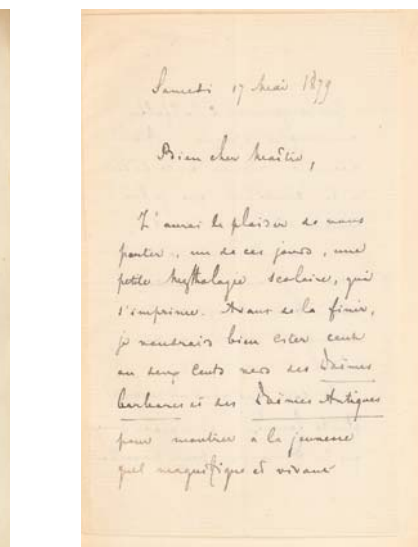 Samedi 17 Mai 1879
Bien cher Maître,
J'aurai le plaisir de vous
porter, un de ces jours, une
petite Mythologie scolaire, qui
s'imprime. Avant de la finir,
je voudrais bien citer cent
ou deux cents vers des Poëmes
barbares et des Poëmes Antiques
pour montrer à la jeunesse
quel magnifique et vivant